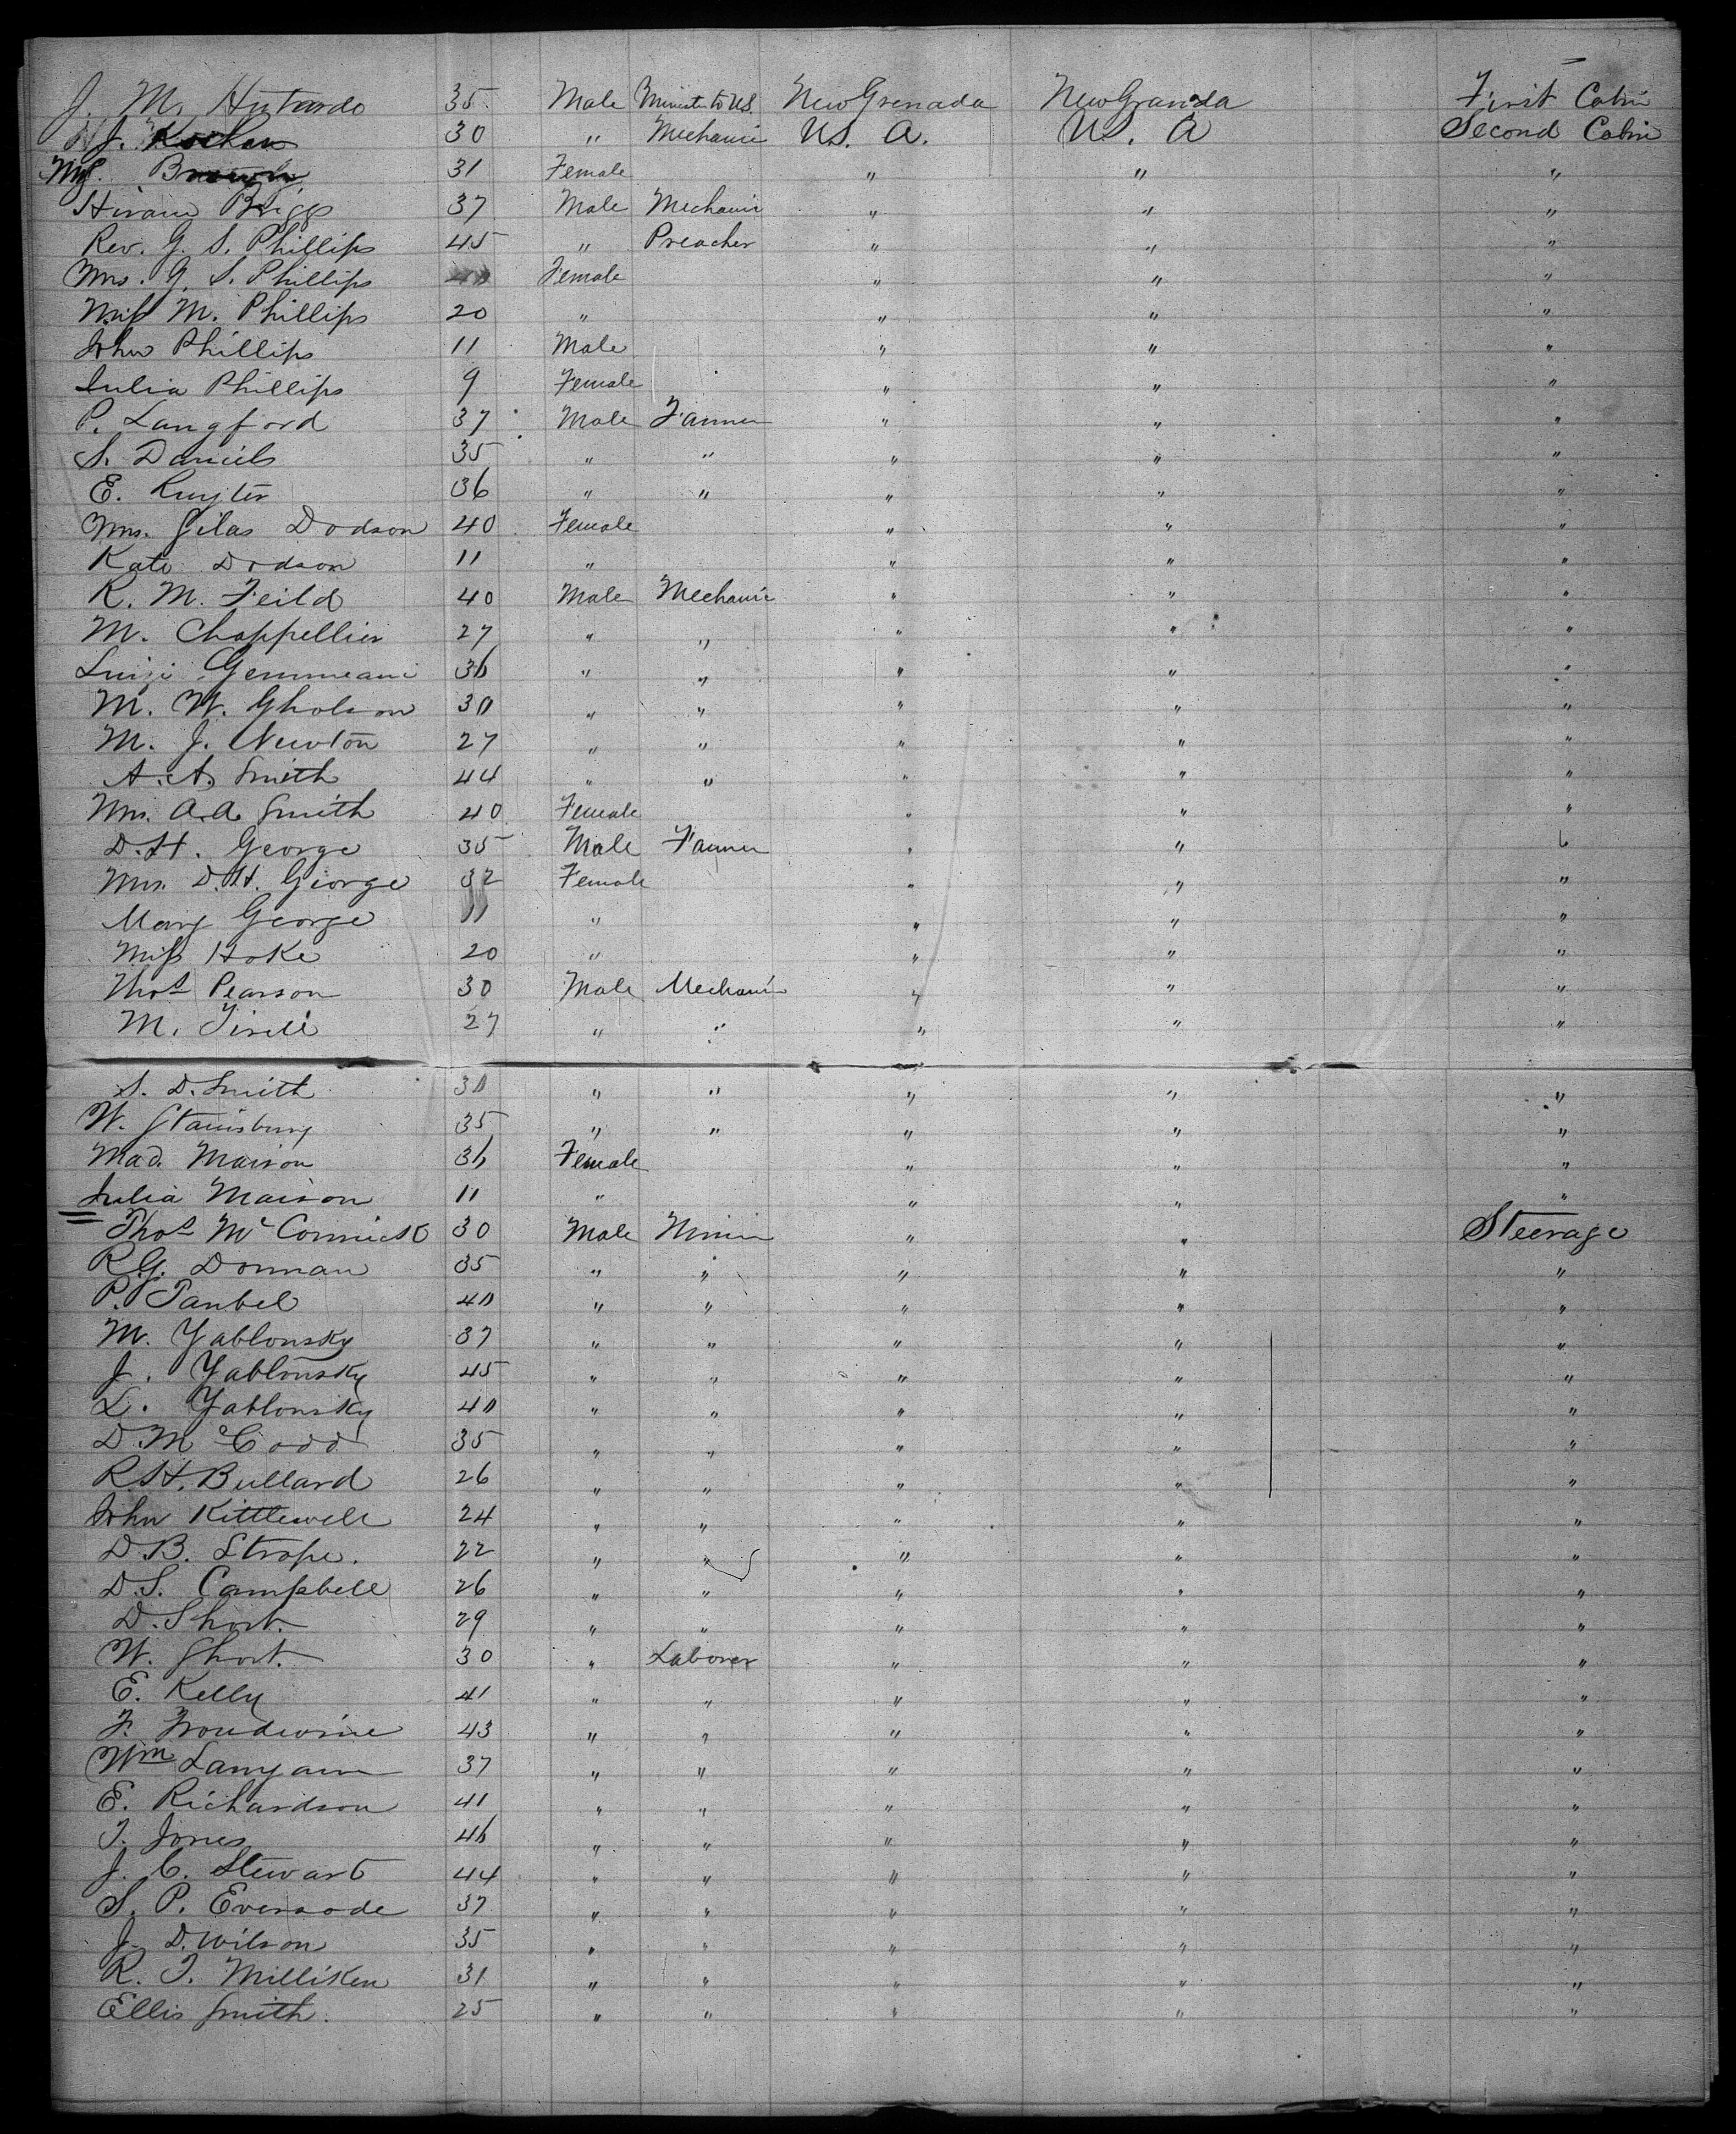 J. M. Hutardo 35 Male Minister to U.S. New Grenada New Granada First Cabin
J. 30 " Mechanic US. A. US. A Second Cabin
31 Female " " "
Hiram Briggs 37 Male Mechanic " " "
Rev. G. S. Phillips 45 " Preacher " " "
Mrs. G. S. Phillips 40 Female " " "
Miss M. Phillips 20 " " " "
John Phillips 11 Male " " "
Julia Phillips 9 Female " " "
P. Langford 37 Male Farmer " " "
S. Daniels 35 " " " " "
E. Ruyter 36 " " " " "
Mrs. Silas Dodson 40 Female " " "
Kate Dodson 11 " " " "
R. M. Feild 40 Male Mechanic " " "
M. Chappellier 27 " " " " "
Luigi 36 " " " " "
M. W. Gholson 30 " " " " "
M. J. Newton 27 " " " " "
A. A. Smith 44 " " " " "
Mrs. A. A. Smith 40 Female " " "
D. H. George 35 Male Farmer " " "
Mrs. D. H. George 32 Female " " "
Mary George 11 " " " "
Miss Hoke 20 " " " "
Thos Pearson 30 Male Mechanic " " "
M. 27 " " " " "
S. D. Smith 30 " " " " "
W. Stansbury 35 " " " " "
Mad. Maison 36 Female " " "
Julia Maison 11 " " " "
Thos McCormick 30 Male Miner " " Steerage
R. G. Dornan 35 " " " " "
P. Taubel 40 " " " " "
M. Yablonsky 37 " " " " "
J. Yablonsky 45 " " " " "
L. Yablonsky 40 " " " " "
D. McCodd 35 " " " " "
R. H. Bullard 26 " " " " "
John Kittlewell 24 " " " " "
D. B. Strope. 22 " " " " "
D. S. Campbell 26 " " " " "
D. Short. 29 " " " " "
W. Short. 30 " Laborer " " "
E. Kelly 41 " " " " "
F. 43 " " " " "
Wm Lanyam 37 " " " " "
E. Richardson 41 " " " " "
T. Jones 46 " " " " "
J. C. Stewart 44 " " " " "
S. P. Eversode 37 " " " " "
J. D. Wilson 35 " " " " "
R. T. Milliken 31 " " " " "
Ellis Smith. 25 " " " " "